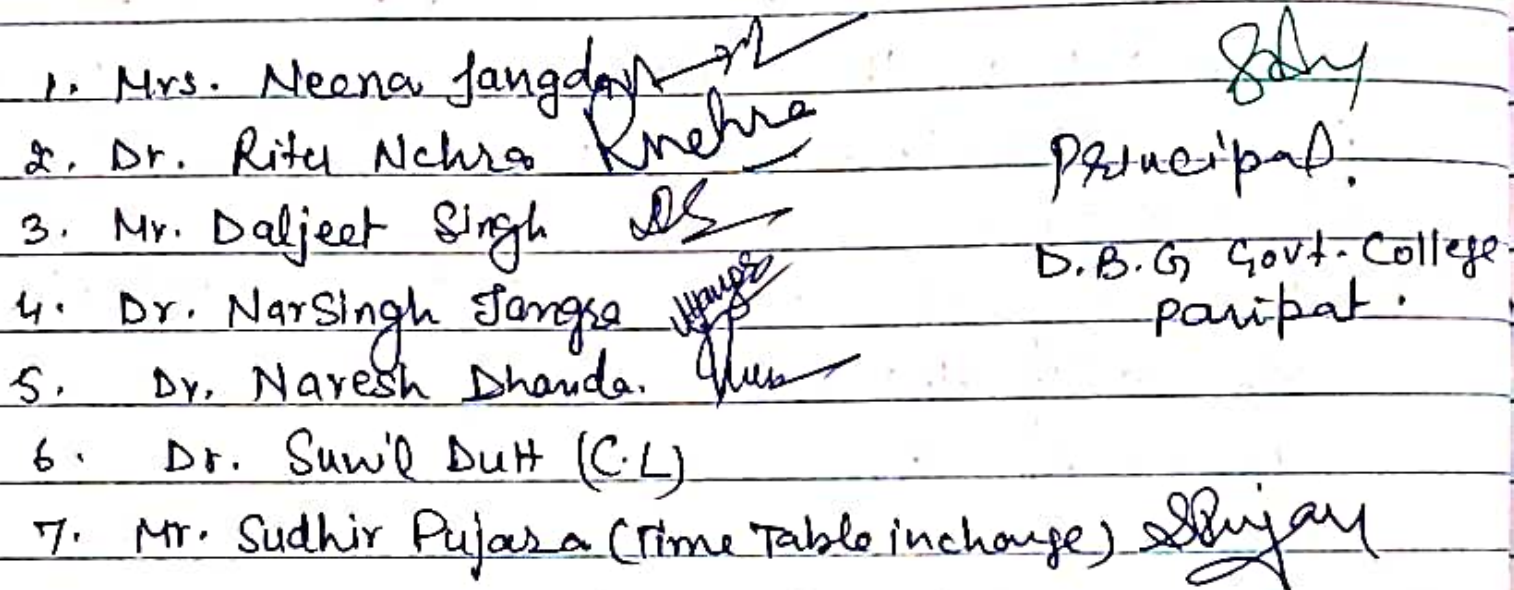 1. Mrs. Neena Jangda
2. Dr. Ritu Nehra Rnehra
3. Mr. Daljeet Singh DS
4. Dr. NarSingh Jangra
5. Dr. Naresh Dhanda.
6. Dr. Sunil Dutt (C.L)
7. Mr. Sudhir Pujara (Time Table incharge)
Principal.
D.B.G Govt. College
panipat.